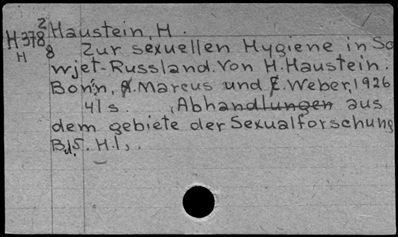 2 Haustein, H.
H378
H 8 Zur sexuellen Hygiene in So
wjet-Russland. Von H. Haustein.
Bonn, A. Marcus und E. Weber, 1926
41 s. (Abhandlungen aus
dem gebiete der Sexualforschung
Bd. 5. H. 1).